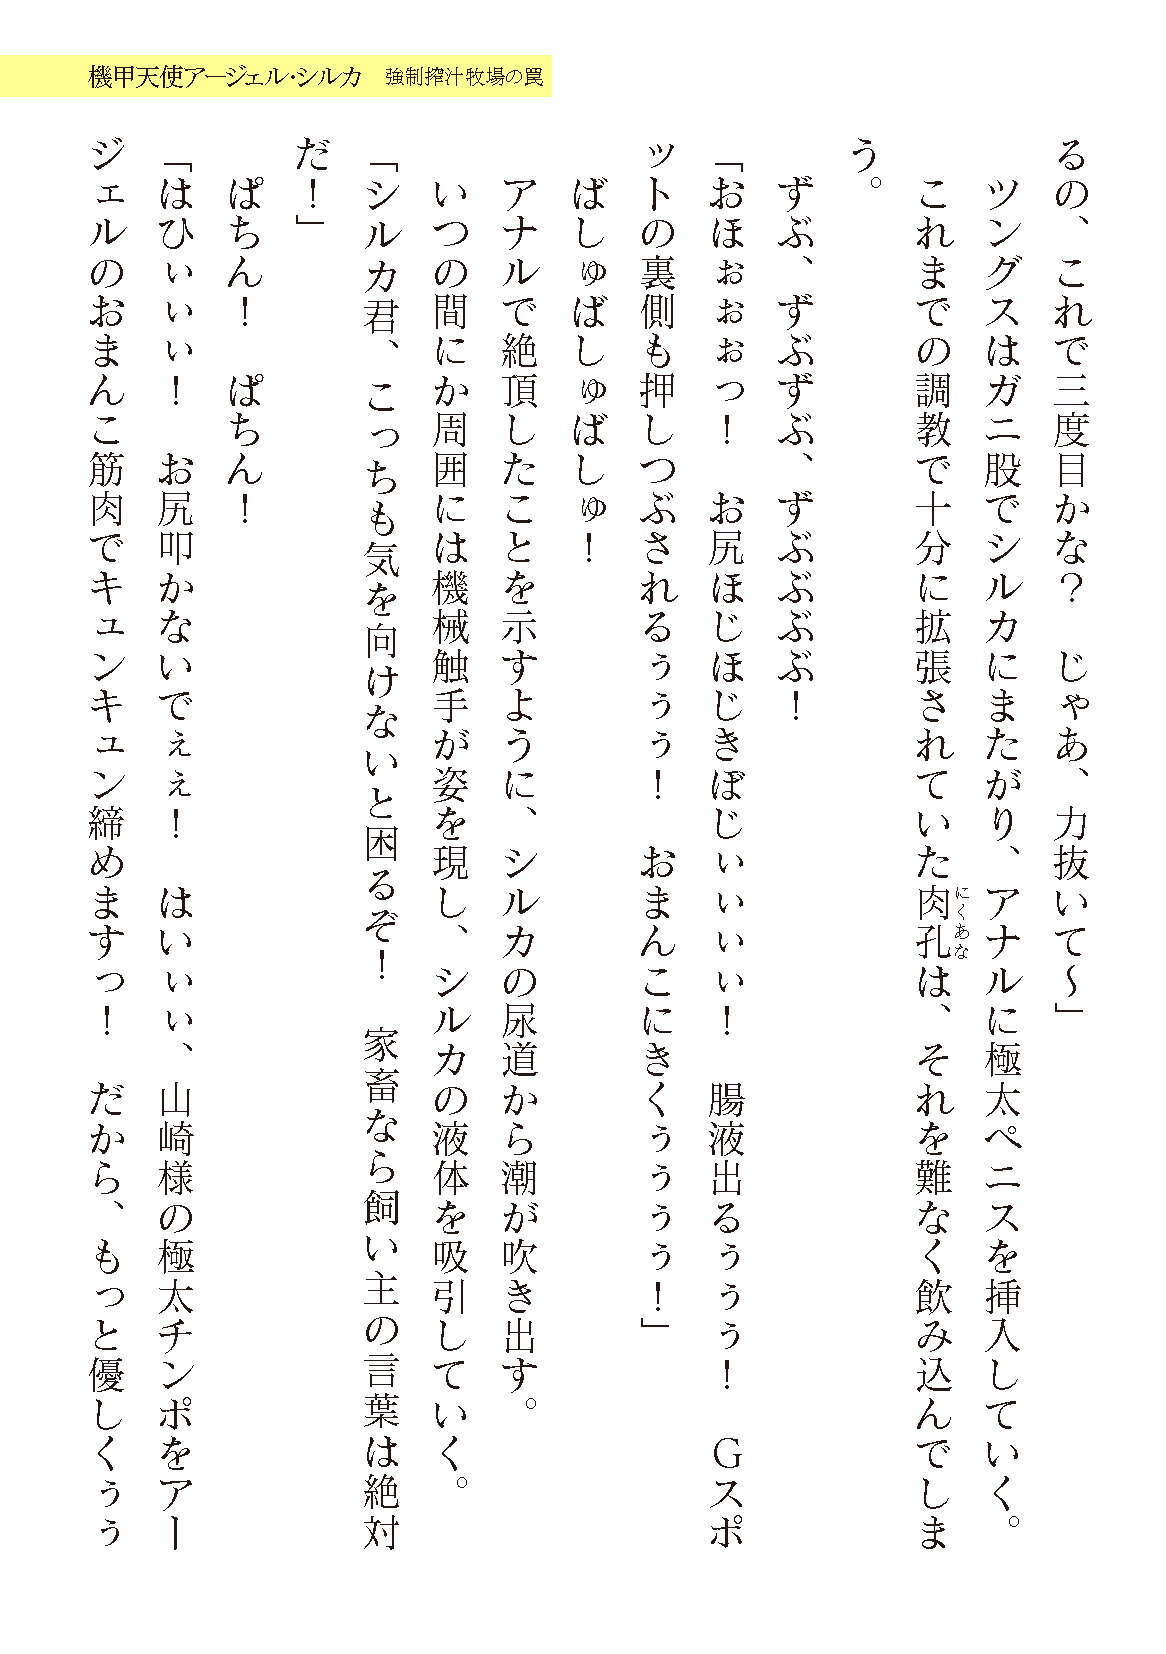 機甲天使アージェル・シルカ　強制搾汁牧場の罠
るの、これで三度目かな？　じゃあ、力抜いて～」
　ツングスはガニ股でシルカにまたがり、アナルに極太ペニスを挿入していく。
　これまでの調教で十分に拡張されていた肉孔は、それを難なく飲み込んでしま
にくあな
う。
　ずぶ、ずぶずぶ、ずぶぶぶぶ！
「おほぉぉぉっ！　お尻ほじほじきぼじぃぃぃぃ！　腸液出るぅぅぅ！　Ｇスポ
ットの裏側も押しつぶされるぅぅぅ！　おまんこにきくぅぅぅぅ！」
　ばしゅばしゅばしゅ！
　アナルで絶頂したことを示すように、シルカの尿道から潮が吹き出す。
　いつの間にか周囲には機械触手が姿を現し、シルカの液体を吸引していく。
「シルカ君、こっちも気を向けないと困るぞ！　家畜なら飼い主の言葉は絶対
だ！」
　ぱちん！　ぱちん！
「はひぃぃぃ！　お尻叩かないでぇぇ！　はいぃぃ、山崎様の極太チンポをアー
ジェルのおまんこ筋肉でキュンキュン締めますっ！　だから、もっと優しくぅぅ